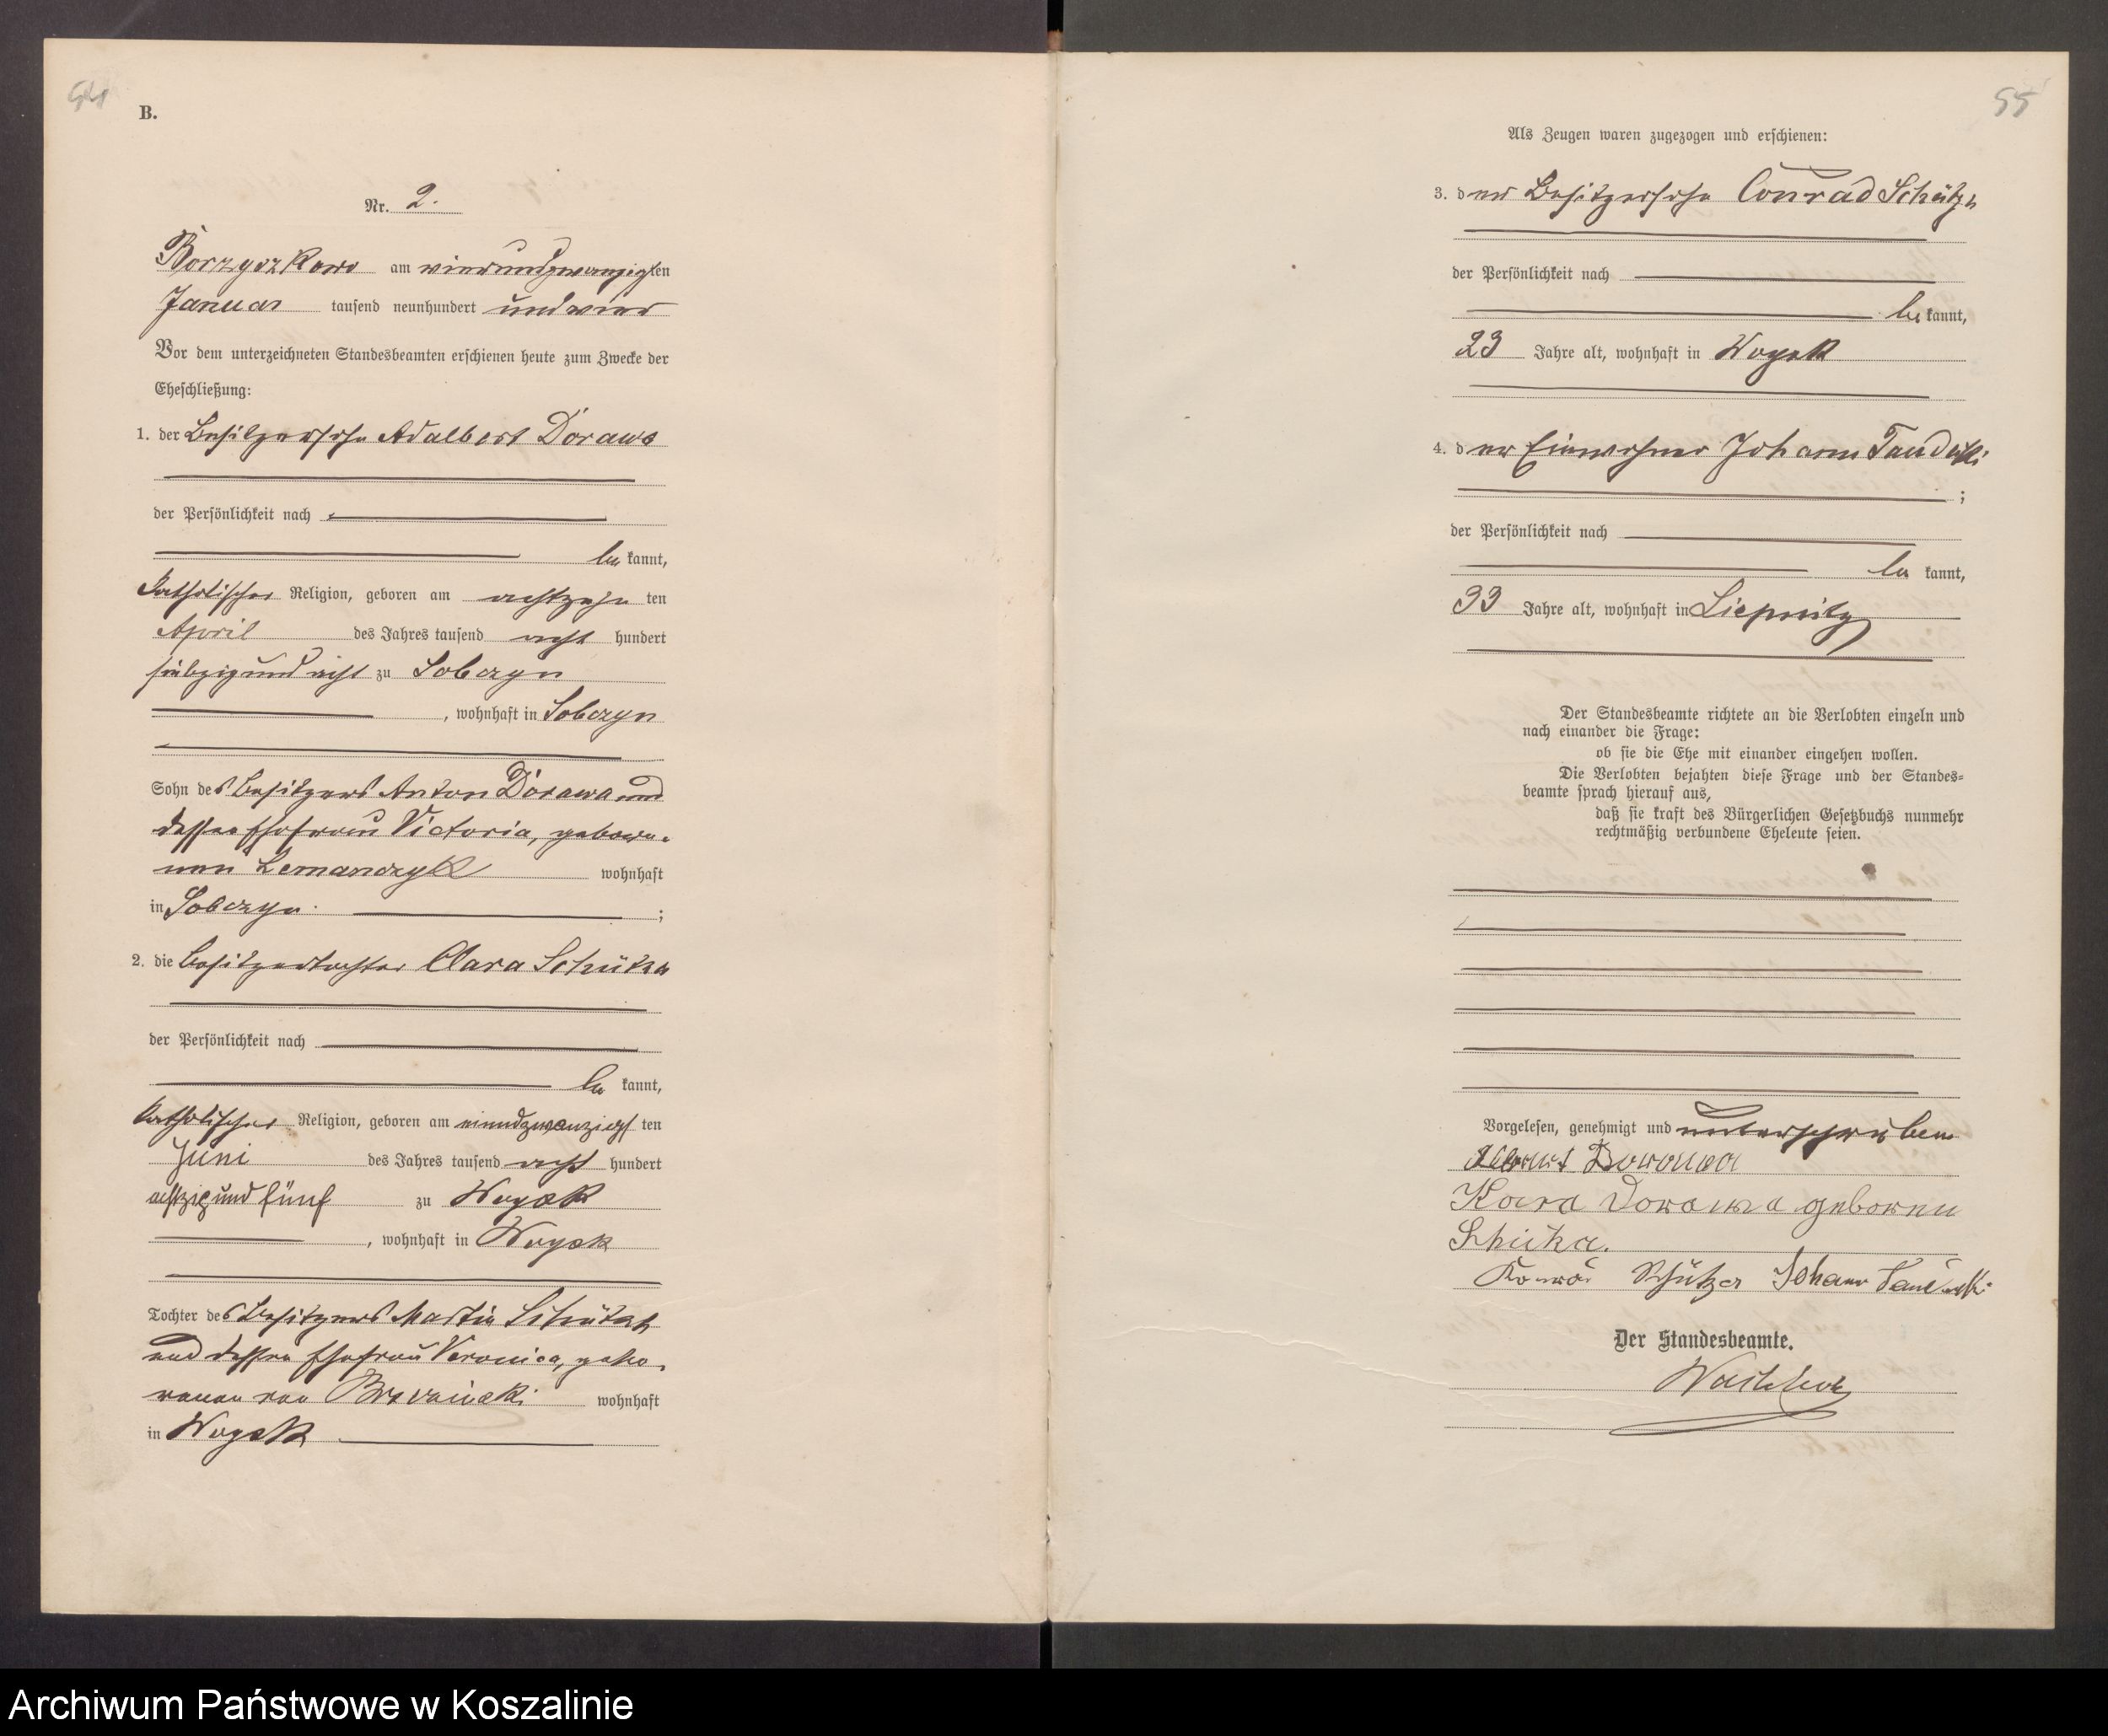 54
B.
Nr. 2.
Borzyszkowo am vierundzwanzigsten
Januar tausend neunhundert und vier
Vor dem unterzeichneten Standesbeamten erschienen heute zum Zwecke der
Eheschließung:
1. der Besitzersohn Adalbert Dorawa
der Persönlichkeit nach
be kannt,
katholischer Religion, geboren am achtzehn ten
April des Jahres tausend acht hundert
siebzig und acht zu Sobczyn
, wohnhaft in Sobczyn
Sohn des Besitzers Anton Dorawa und
dessen Ehefrau Victoria, gebore-
nen Lemanczyk wohnhaft
in Sobczyn. ;
2. die Besitzertochter Clara Schütza
der Persönlichkeit nach
be kannt,
katholischer Religion, geboren am einundzwanzigs ten
Juni des Jahres tausend acht hundert
achtzig und fünf zu Woysk
, wohnhaft in Woysk
Tochter des Besitzers Martin Schütza
und dessen Ehefrau Veronica, gebo-
renen von wohnhaft
in Woysk
55
Als Zeugen waren zugezogen und erschienen:
3. der Besitzersohn Conrad Schütza
der Persönlichkeit nach
be kannt,
23 Jahre alt, wohnhaft in Woysk
4. der Einwohner Johann
;
der Persönlichkeit nach
be kannt,
33 Jahre alt, wohnhaft in Liepnitz
Der Standesbeamte richtete an die Verlobten einzeln und
nach einander die Frage:
ob sie die Ehe mit einander eingehen wollen.
Die Verlobten bejahten diese Frage und der Standes-
beamte sprach hierauf aus,
daß sie kraft des Bürgerlichen Gesetzbuchs nunmehr
rechtmäßig verbundene Eheleute seien.
Vorgelesen, genehmigt und unterschrieben
Dorowa
Klara Dorawa geboren
Schütza.
Konrad Schütza Johann
Der Standesbeamte.
Archiwum Państwowe w Koszalinie